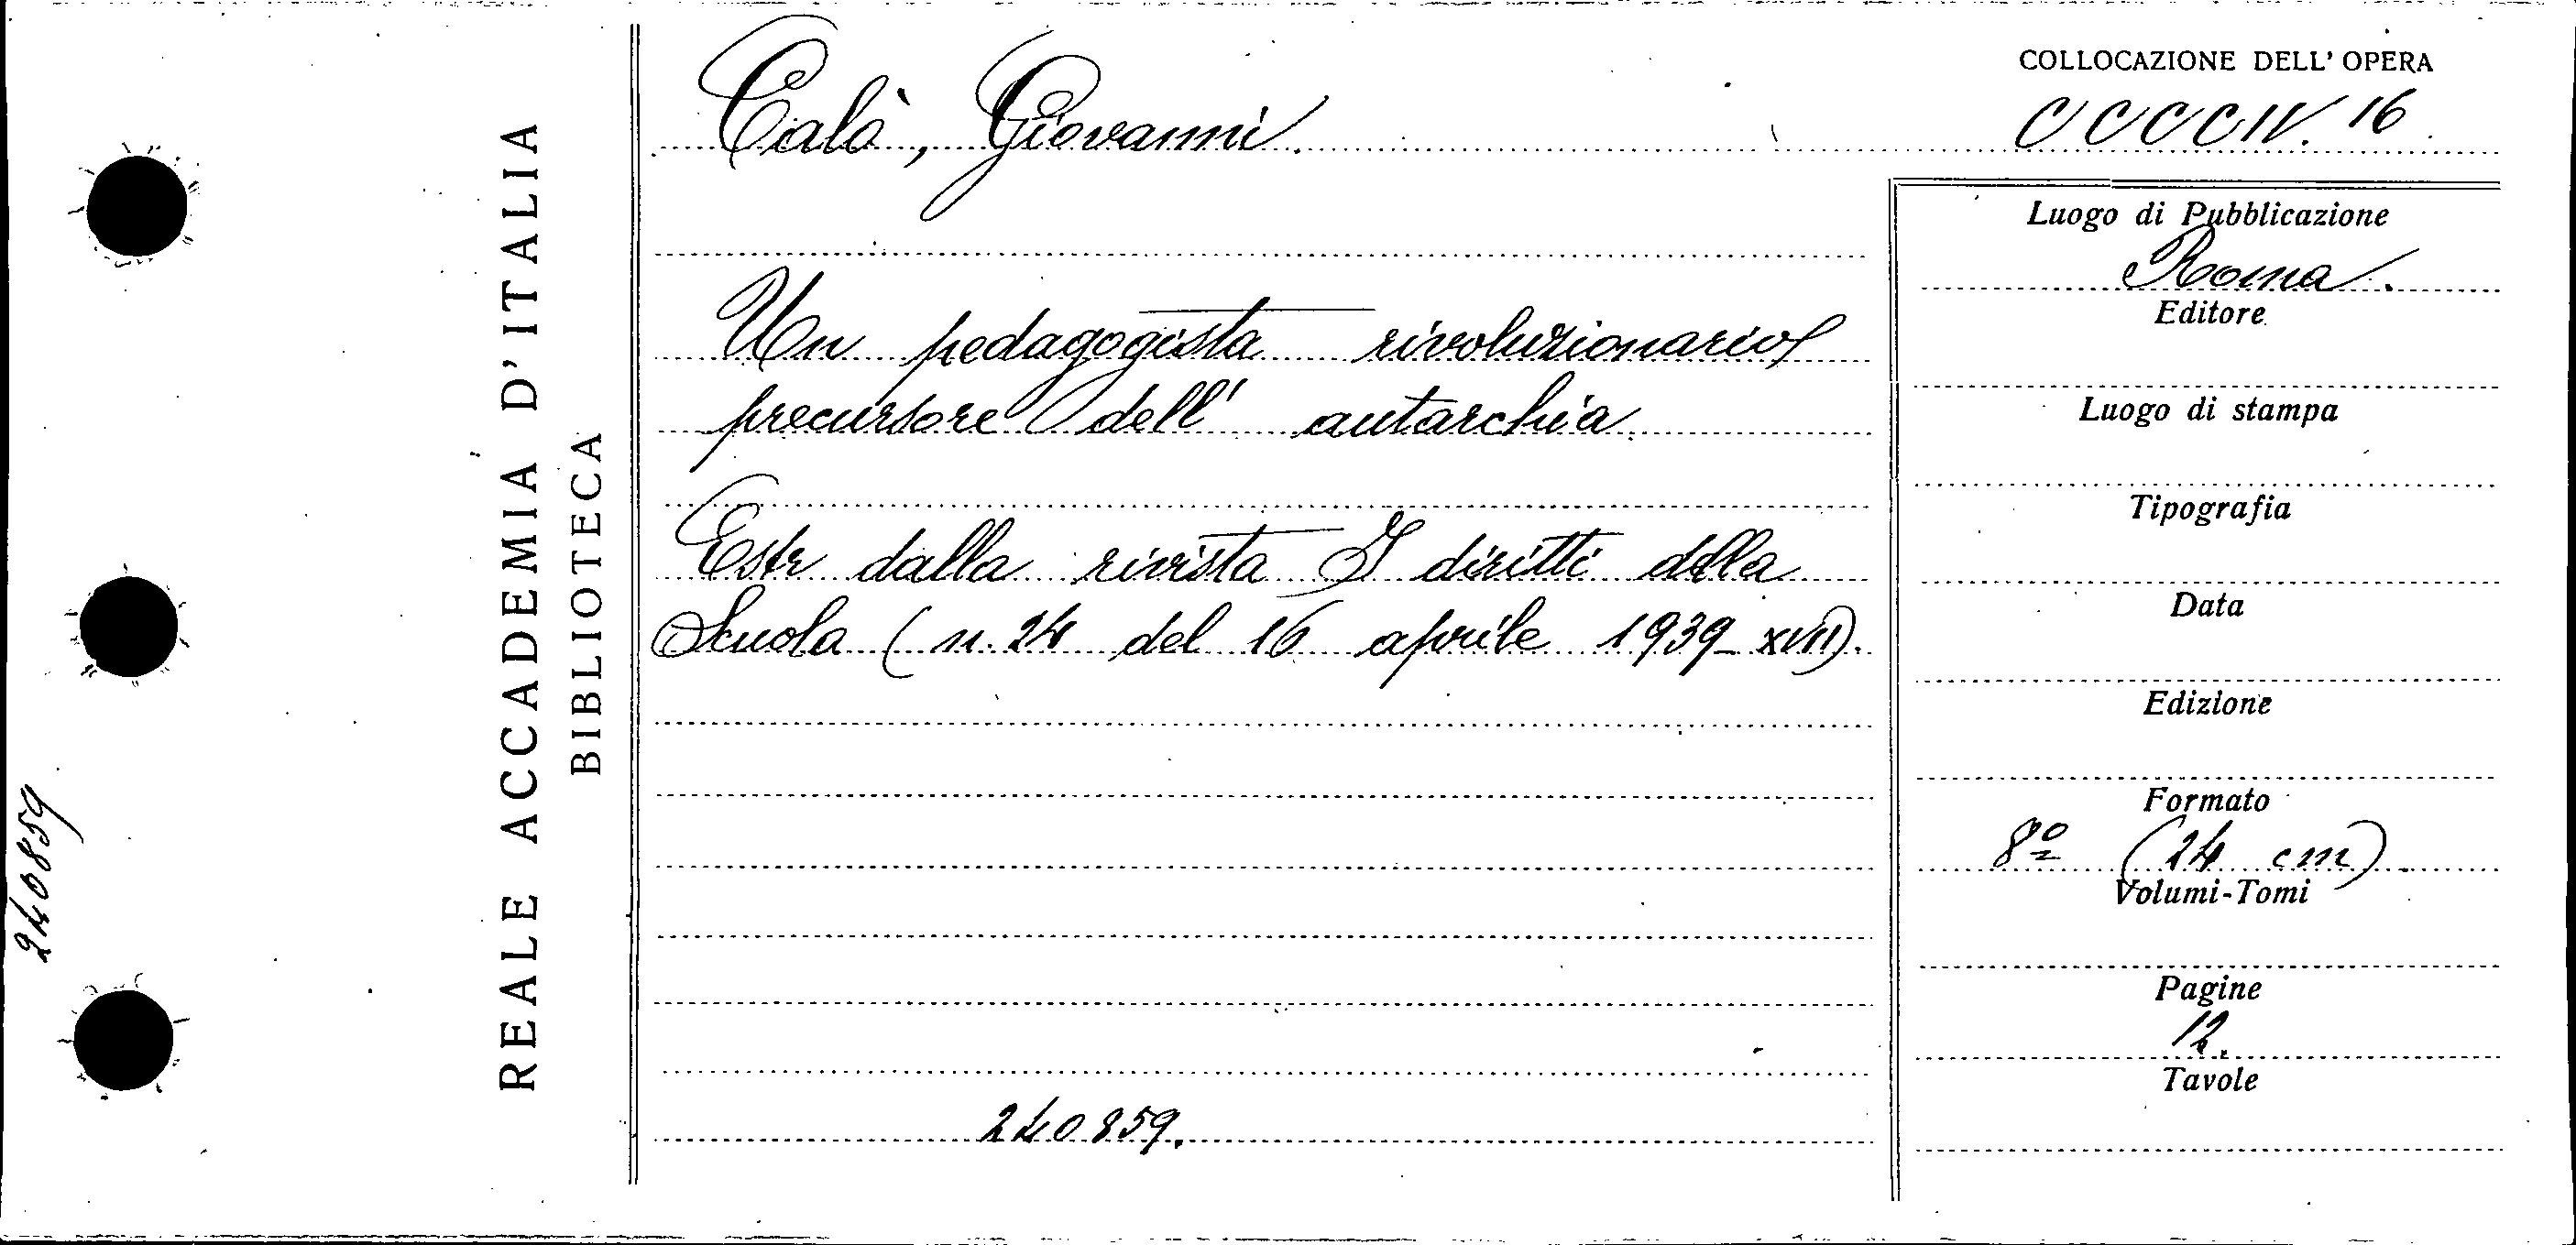 240859
REALE ACCADEMIA D'ITALIA
BIBLIOTECA
Calò, Giovanni.
Un pedagogista rivoluzionario
precursore dell' autarchia.
Estr dalla rivista I diritti della
Scuola (n. 24 del 16 aprile 1939_XVII).
240859.
COLLOCAZIONE DELL' OPERA
CCCCIV. 16
Luogo di Pubblicazione
Roma.
Editore
Luogo di stampa
Tipografia
Data
Edizione
Formato
8º (24 cm)
Volumi-Tomi
Pagine
12.
Tavole